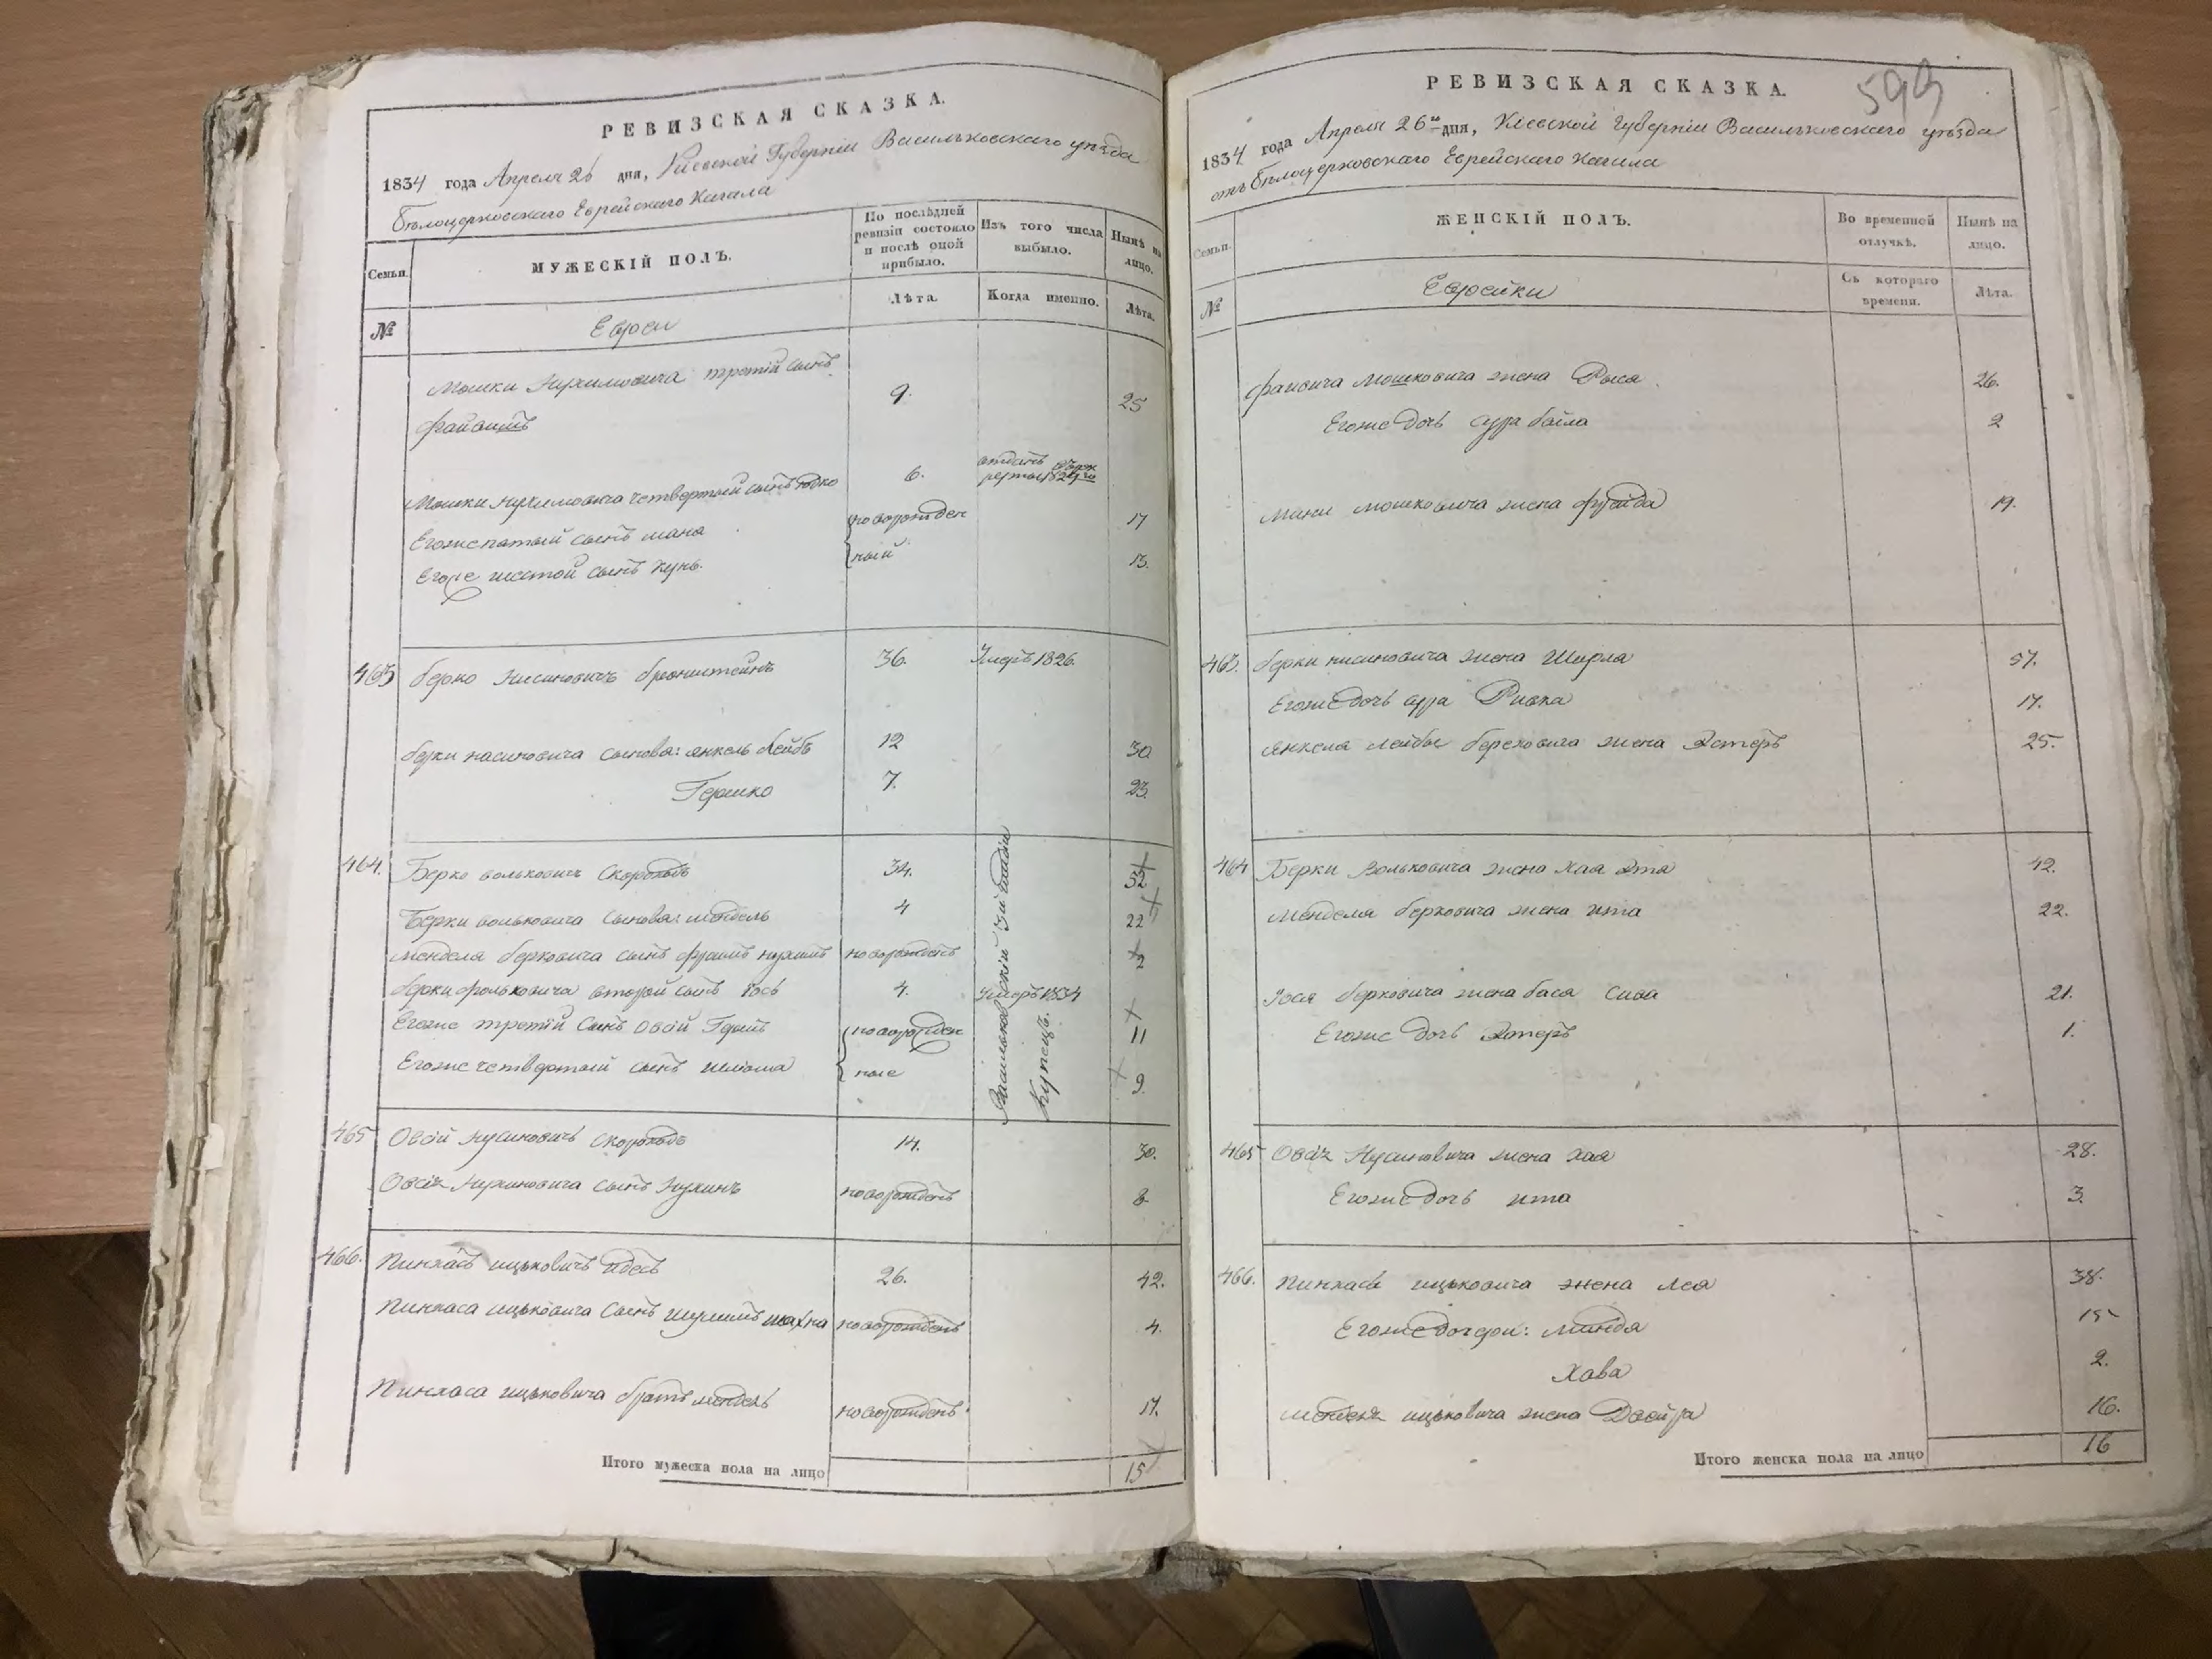 РЕВИЗСКАЯ СКАЗКА.
1834 года Апреля 26 дня, Кіевской Губерніи Васильковскаго уѣзда
Бѣлоцерковскаго Еврейскаго Кагала
Семьи.
МУЖЕСКІЙ ПОЛЪ.
По послѣдней ревизіи состояло и послѣ оной прибыло.
Изъ того числа выбыло.
Нынѣ на лицо.
№
Евреи
Лѣта.
Когда именно.
Лѣта.
Мошки Нухимовича третій сынъ
Файвишъ 9. 25
Мошки Нухимовича четвертый сынъ 6. отданъ
Егоже пятый сынъ мана новорожден 17
Егоже шестой сынъ ный 13.
463 берко Нисиновичъ бронштейнъ 36. Умеръ 1826.
берки нисиновича сыновья: янкель лейбъ 12 30
Гершко 7. 23.
464. Берко вольковичъ Скороходъ 34. 52
Берки вольковича сыновья: мендель 4 22
менделя берковича сынъ нухимъ новорожденъ 2
берки вольковича второй сынъ Іось 4. Умеръ 1834
Егоже третій сынъ Овсій Гершъ новорожден 11
Егоже четвертый сынъ шліома ные 9.
Купецъ.
465 Овсій Нусиновичъ скороходъ 14. 30.
Овсія сынъ Нухимъ новорожденъ 8
466. Пинхасъ ицьковичъ 26. 42.
Пинхаса ицьковича сынъ шулимъ шахна новорожденъ 4.
Пинхаса ицьковича братъ мендель новорожденъ 17.
Итого мужеска пола на лицо 15
599
РЕВИЗСКАЯ СКАЗКА.
1834 года Апреля 26го дня, Кіевской Губерніи Васильковскаго уѣзда
отъ Бѣлоцерковскаго Еврейскаго Кагала
Семьи.
ЖЕНСКІЙ ПОЛЪ.
Во временной отлучкѣ.
Нынѣ на лицо.
№
Еврейки
Съ котораго времени.
Лѣта.
Файвиша Мошковича жена Рыся 26.
Егоже дочь сура бейла 2
Мани мошковича жена фрейда 19.
463. берки нисиновича жена Шифра 57.
Егоже дочь сура Ривка 17.
янкеля лейбы берковича жена Эстеръ 25.
464 Берки Вольковича жена Хая Эта 42.
менделя берковича жена ита 22.
Іося берковича жена бася сива 21.
Егоже дочь Эстеръ 1.
465 Овсія Нусиновича жена хая 28.
Егоже дочь ита 3.
466. Пинхаса ицьковича жена лея 38.
Егоже дочери: миндя 15
Хава 2.
менделя ицьковича жена Двойра 16.
Итого женска пола на лицо 16